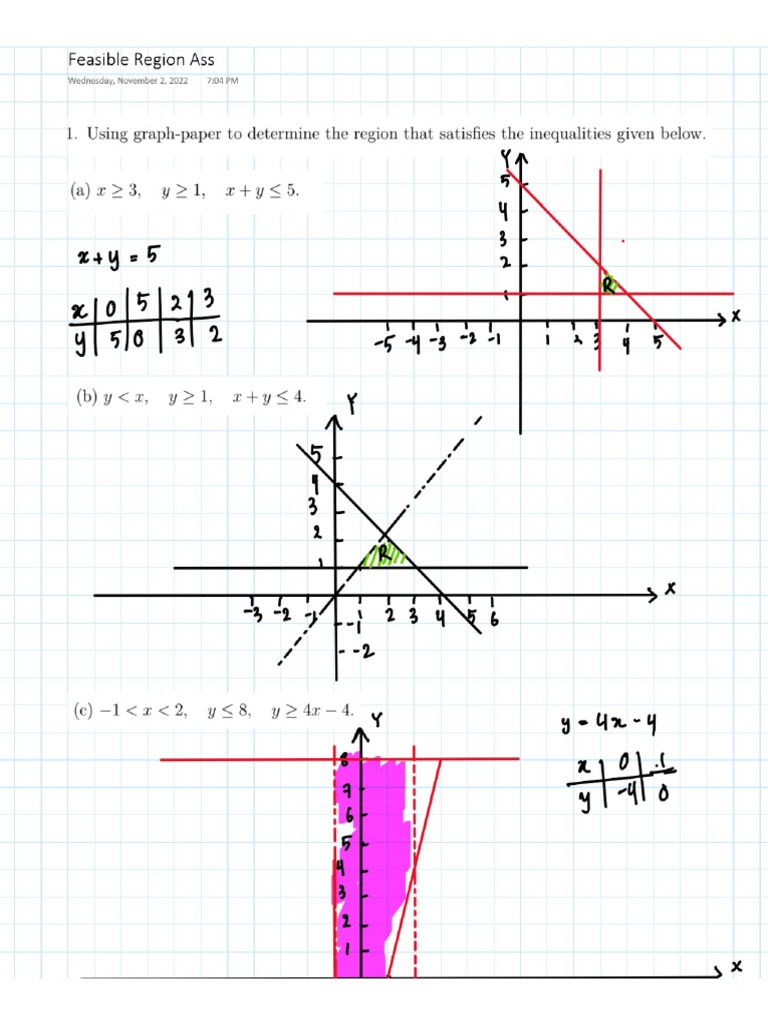 Feasible Region Ass
Wednesday, November 2, 2022 7:04 PM
1. Using graph-paper to determine the region that satisfies the inequalities given below.
(a) x ≥ 3, y ≥ 1, x + y ≤ 5.
Y
5
4
3
2
1
R
X
-5 -4 -3 -2 -1 1 2 3 4 5
x + y = 5
x 0 5 2 3
y 5 0 3 2
(b) y < x, y ≥ 1, x + y ≤ 4.
Y
5
4
3
2
1
R
X
-3 -2 -1 2 3 4 5 6
-1
-2
(c) −1 < x < 2, y ≤ 8, y ≥ 4x − 4.
Y
8
7
6
5
4
3
2
1
X
y = 4x - 4
x 0 1
y -4 0